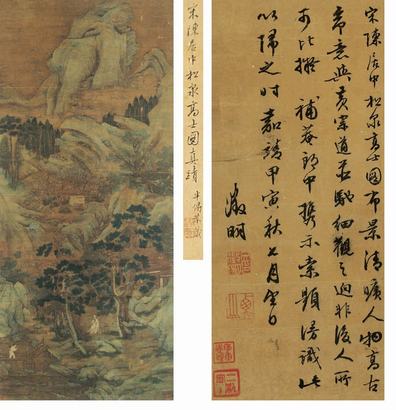 宋陳居中松泉高士圖布景清曠人物高古
意與黃宗道並馳細觀之迥非後人所
可比擬補菴郎中携示索題漫識此
以歸之時嘉靖甲寅秋七月望日
徵明
宋陳居中松泉高士圖真蹟